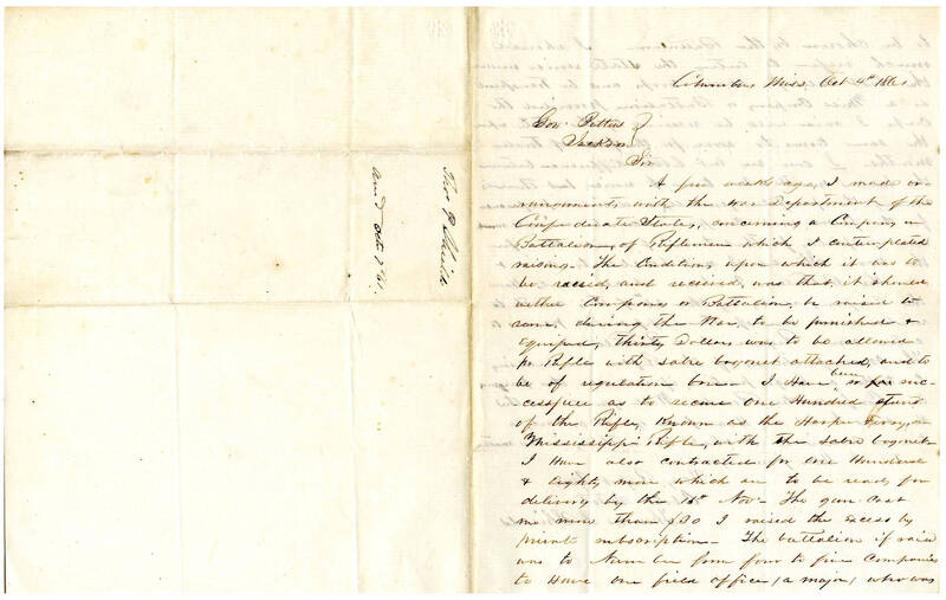 Thos P Shields
ansd Octr 7th 61.
Columbus Miss Oct 4th 1861
Gov. Pettus
Jackson
Sir
A few weeks ago, I made ar-
rangements with the War Department of the
Confederate States, concerning a Company or
Battalion, of Riflemen which I contemplated
raising. The Conditions upon which it was to
be raised, and received, was that, it should
either Company or Battalion, be raised to
serve during the War, to be furnished &
Equiped, thirty Dollars was to be allowed
pr Rifle with sabre bayonet attached, and to
be of regulation bore - I Have been so far suc-
cessfull as to secure one Hundred stand
of the Rifle, Known as the Harper Ferry, or
Mississippi Rifle, with the sabre bayonet -
I Have also contracted for one Hundred
& Eighty more which are to be ready for
delivery by the 1st Nov. - The gun cost
me more than $30 I raised the excess by
private subscription - The battalion if raised
was to Number from four to five Companies
to Have one field officer, (a major) who was